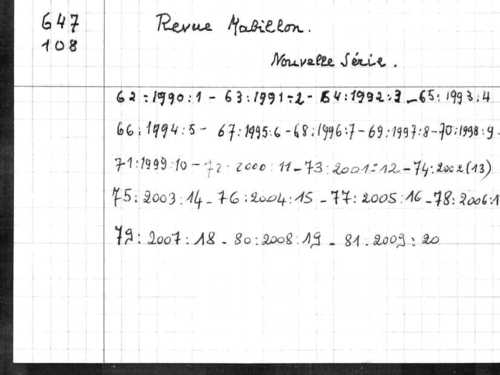 647
108
Revue Mabillon.
Nouvelle Série.
62:1990:1 - 63:1991:2 - 64:1992:3 - 65:1993:4
66:1994:5 - 67:1995:6 - 68:1996:7 - 69:1997:8 - 70:1998:9 -
71:1999:10 - 72:2000:11 - 73:2001:12 - 74:2002(13)
75:2003:14 - 76:2004:15 - 77:2005:16 - 78:2006:1
79:2007:18 - 80:2008:19 - 81.2009:20